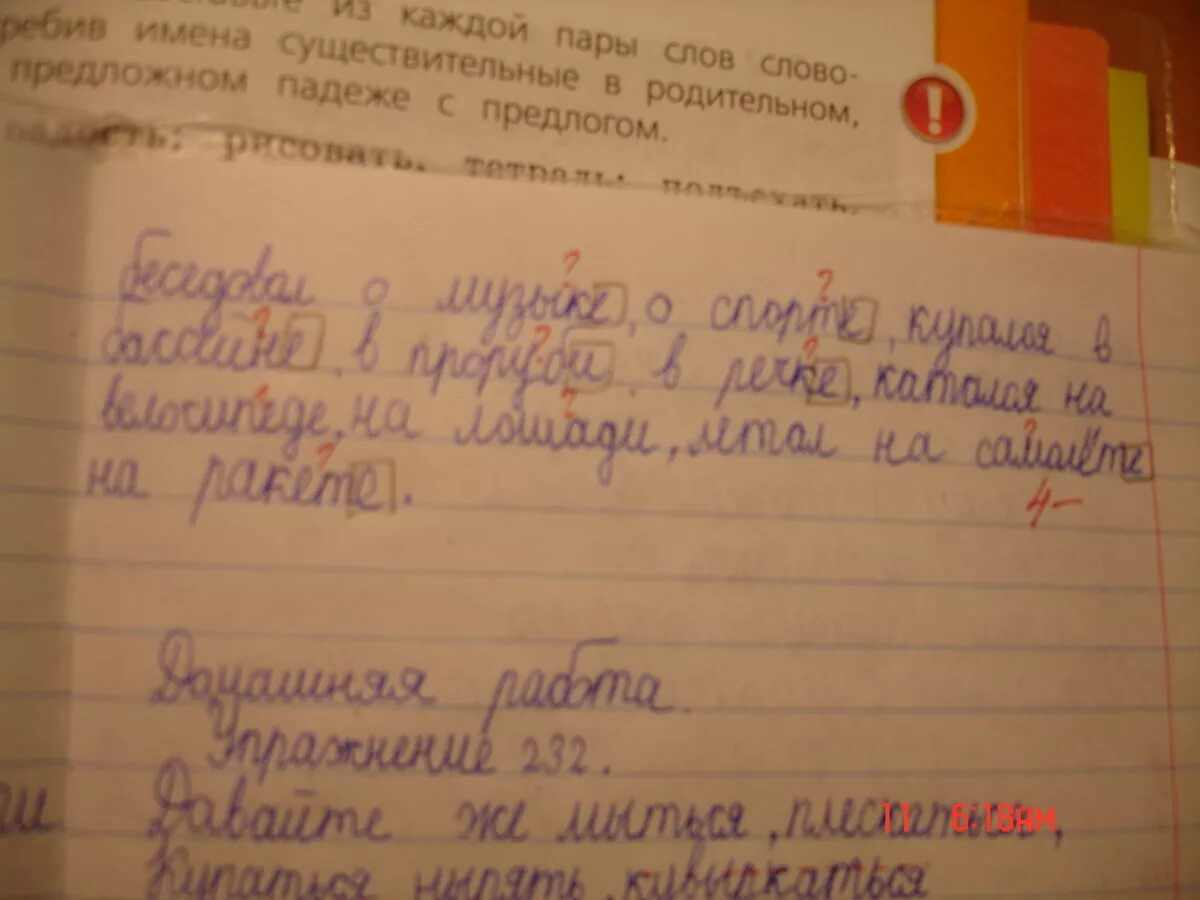 из каждой пары слов слово-
имена существительные в родительном,
предложном падеже с предлогом.
рисовать, тетрадь; подъехать,
беседовал о музыке, о спорте, купался в
бассейне, в проруби, в речке, катался на
велосипеде, на лошади, летал на самолёте
на ракете.
4-
Домашняя работа.
Упражнение 232.
Давайте же мыться, плескаться,
Купаться нырять, кувыркаться
11 6:18AM